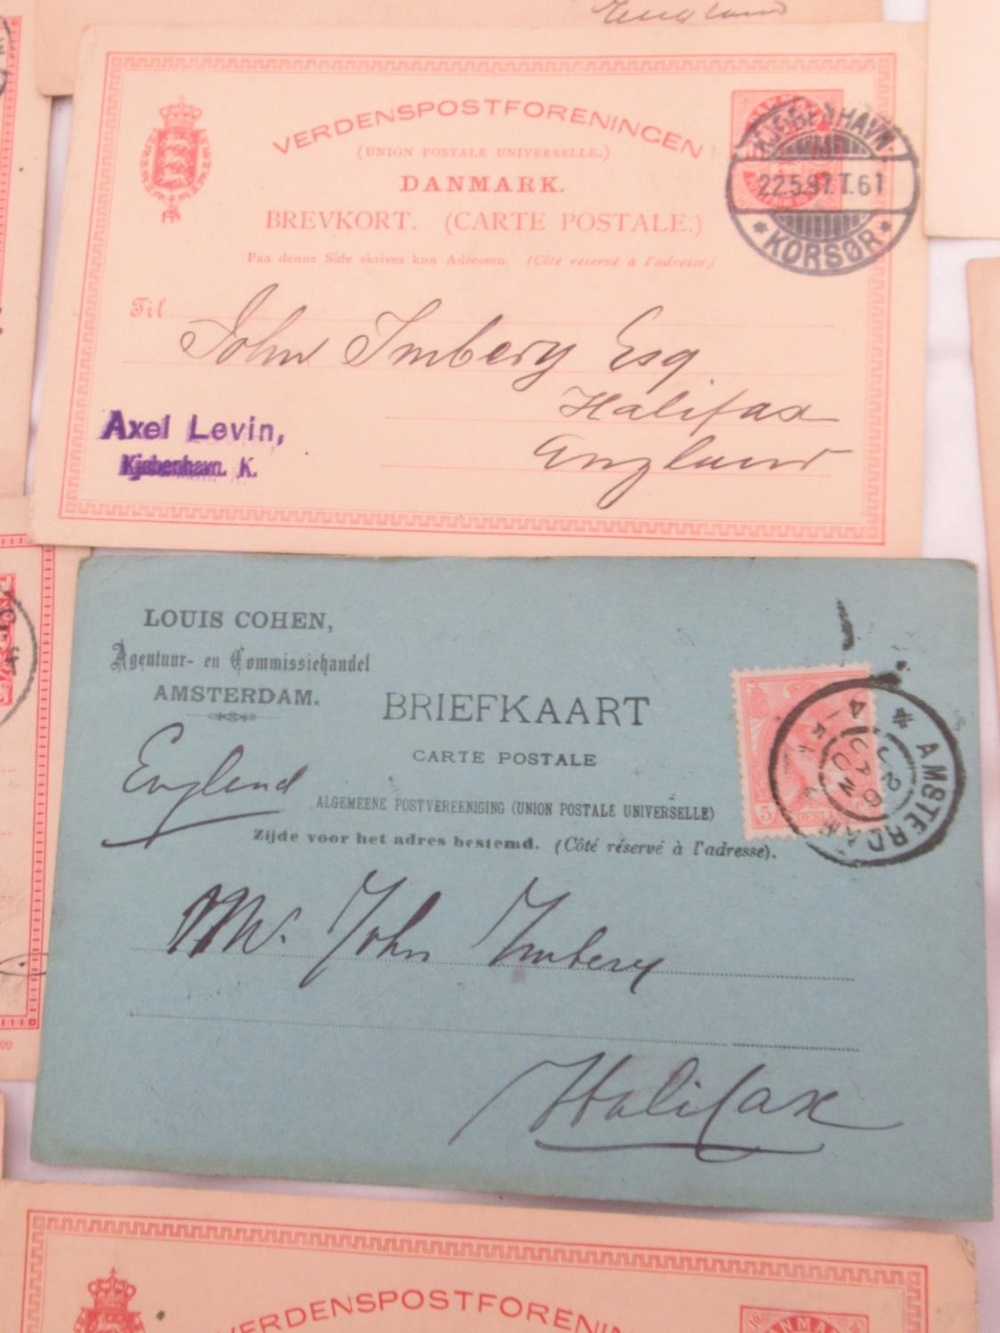 England
VERDENSPOSTFORENINGEN
(UNION POSTALE UNIVERSELLE.)
DANMARK.
BREVKORT. (CARTE POSTALE.)
Paa denne Side skrives kun Adressen. (Côté réservé à l'adresse.)
KJØBENHAVN-
22.5.97.T.61
*KORSØR*
Til
John Imbery Esq
Halifax
England
Axel Levin,
Kjøbenhavn. K.
LOUIS COHEN,
Agentuur- en Commissiehandel
AMSTERDAM.
BRIEFKAART
CARTE POSTALE
England
ALGEMEENE POSTVEREENIGING (UNION POSTALE UNIVERSELLE)
Zijde voor het adres bestemd. (Côté réservé à l'adresse).
5
AMSTERDAM
Mr. John Imbery
Halifax
VERDENSPOSTFORENIN
DANMAR